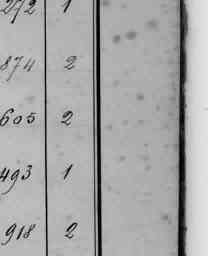 272 1
874 2
605 2
493 1
918 2